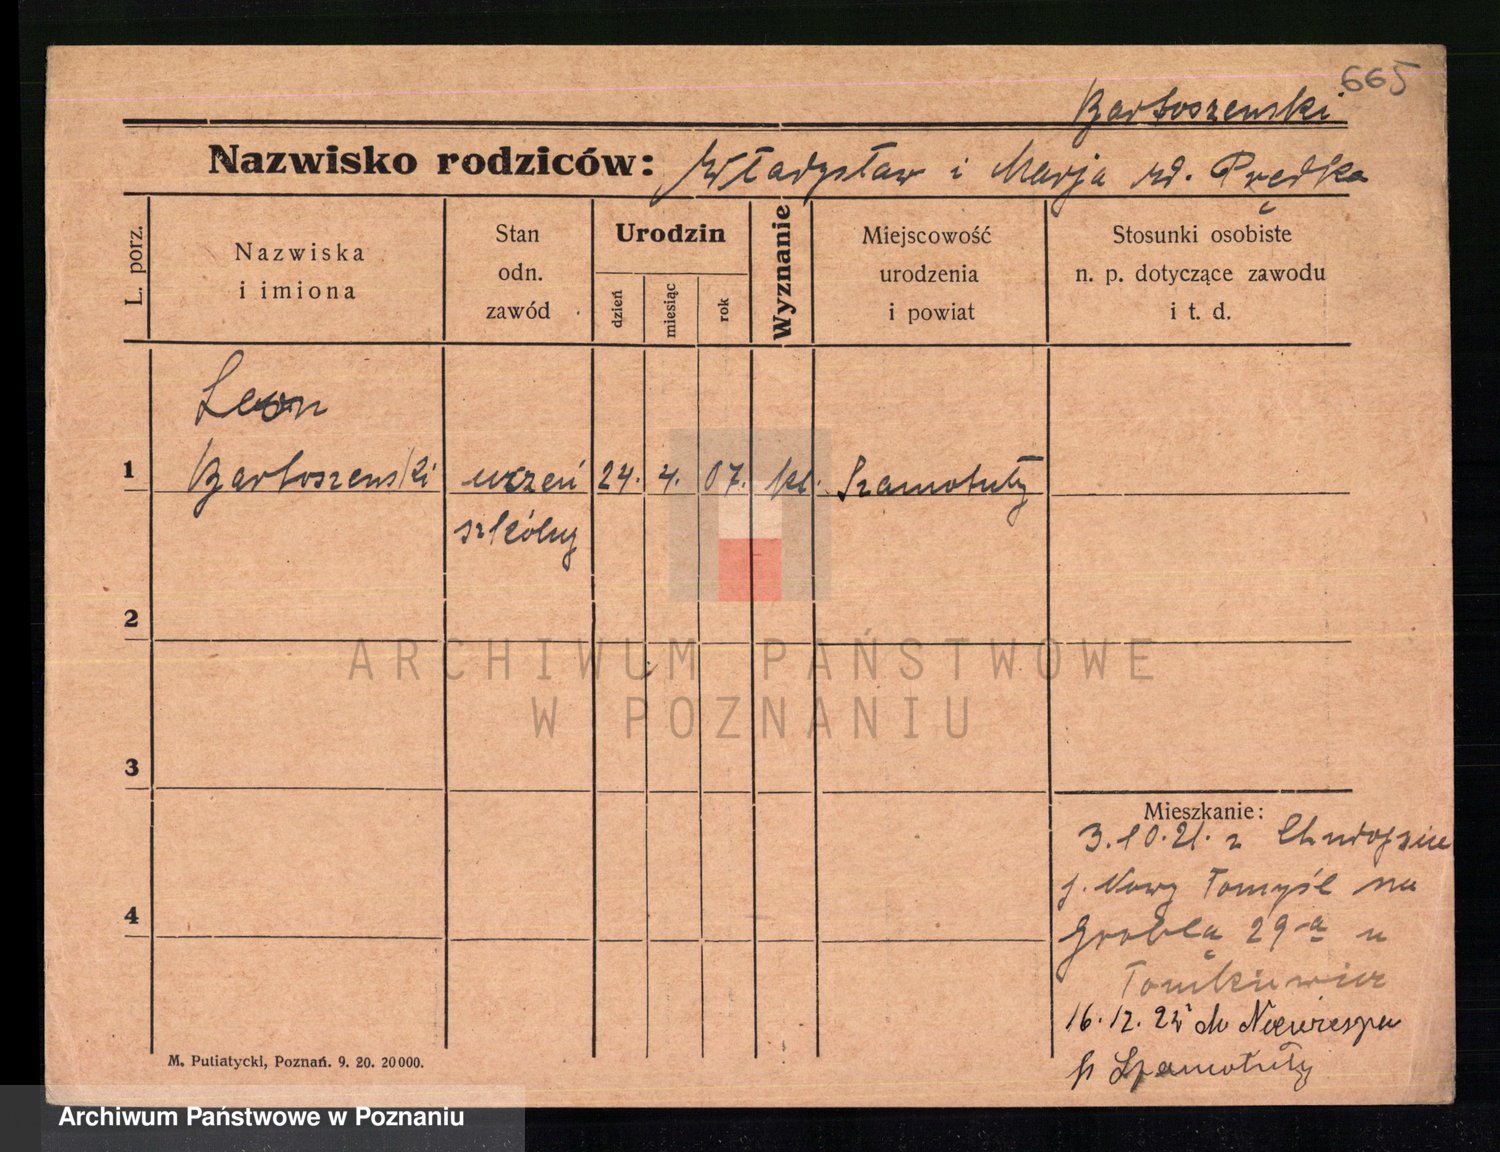 665
Bartoszewski
Nazwisko rodziców: Władysław i Marja rd. Prędka
L. porz.
Nazwiska
i imiona
Stan
odn.
zawód
Urodzin
dzień
miesiąc
rok
Wyznanie
Miejscowość
urodzenia
i powiat
Stosunki osobiste
n. p. dotyczące zawodu
i t. d.
Leon
1 Bartoszewski uczeń 24. 4. 07. kt. Szamotuły
szkólny
2
ARCHIWUM PAŃSTWOWE
W POZNANIU
3
Mieszkanie:
3.10.21. z
p. Nowy Tomyśl na
4
Groblą 29-a u
Tomkiewicz
16.12.22 do
p Szamotuły
M. Putiatycki, Poznań. 9. 20. 20000.
Archiwum Państwowe w Poznaniu